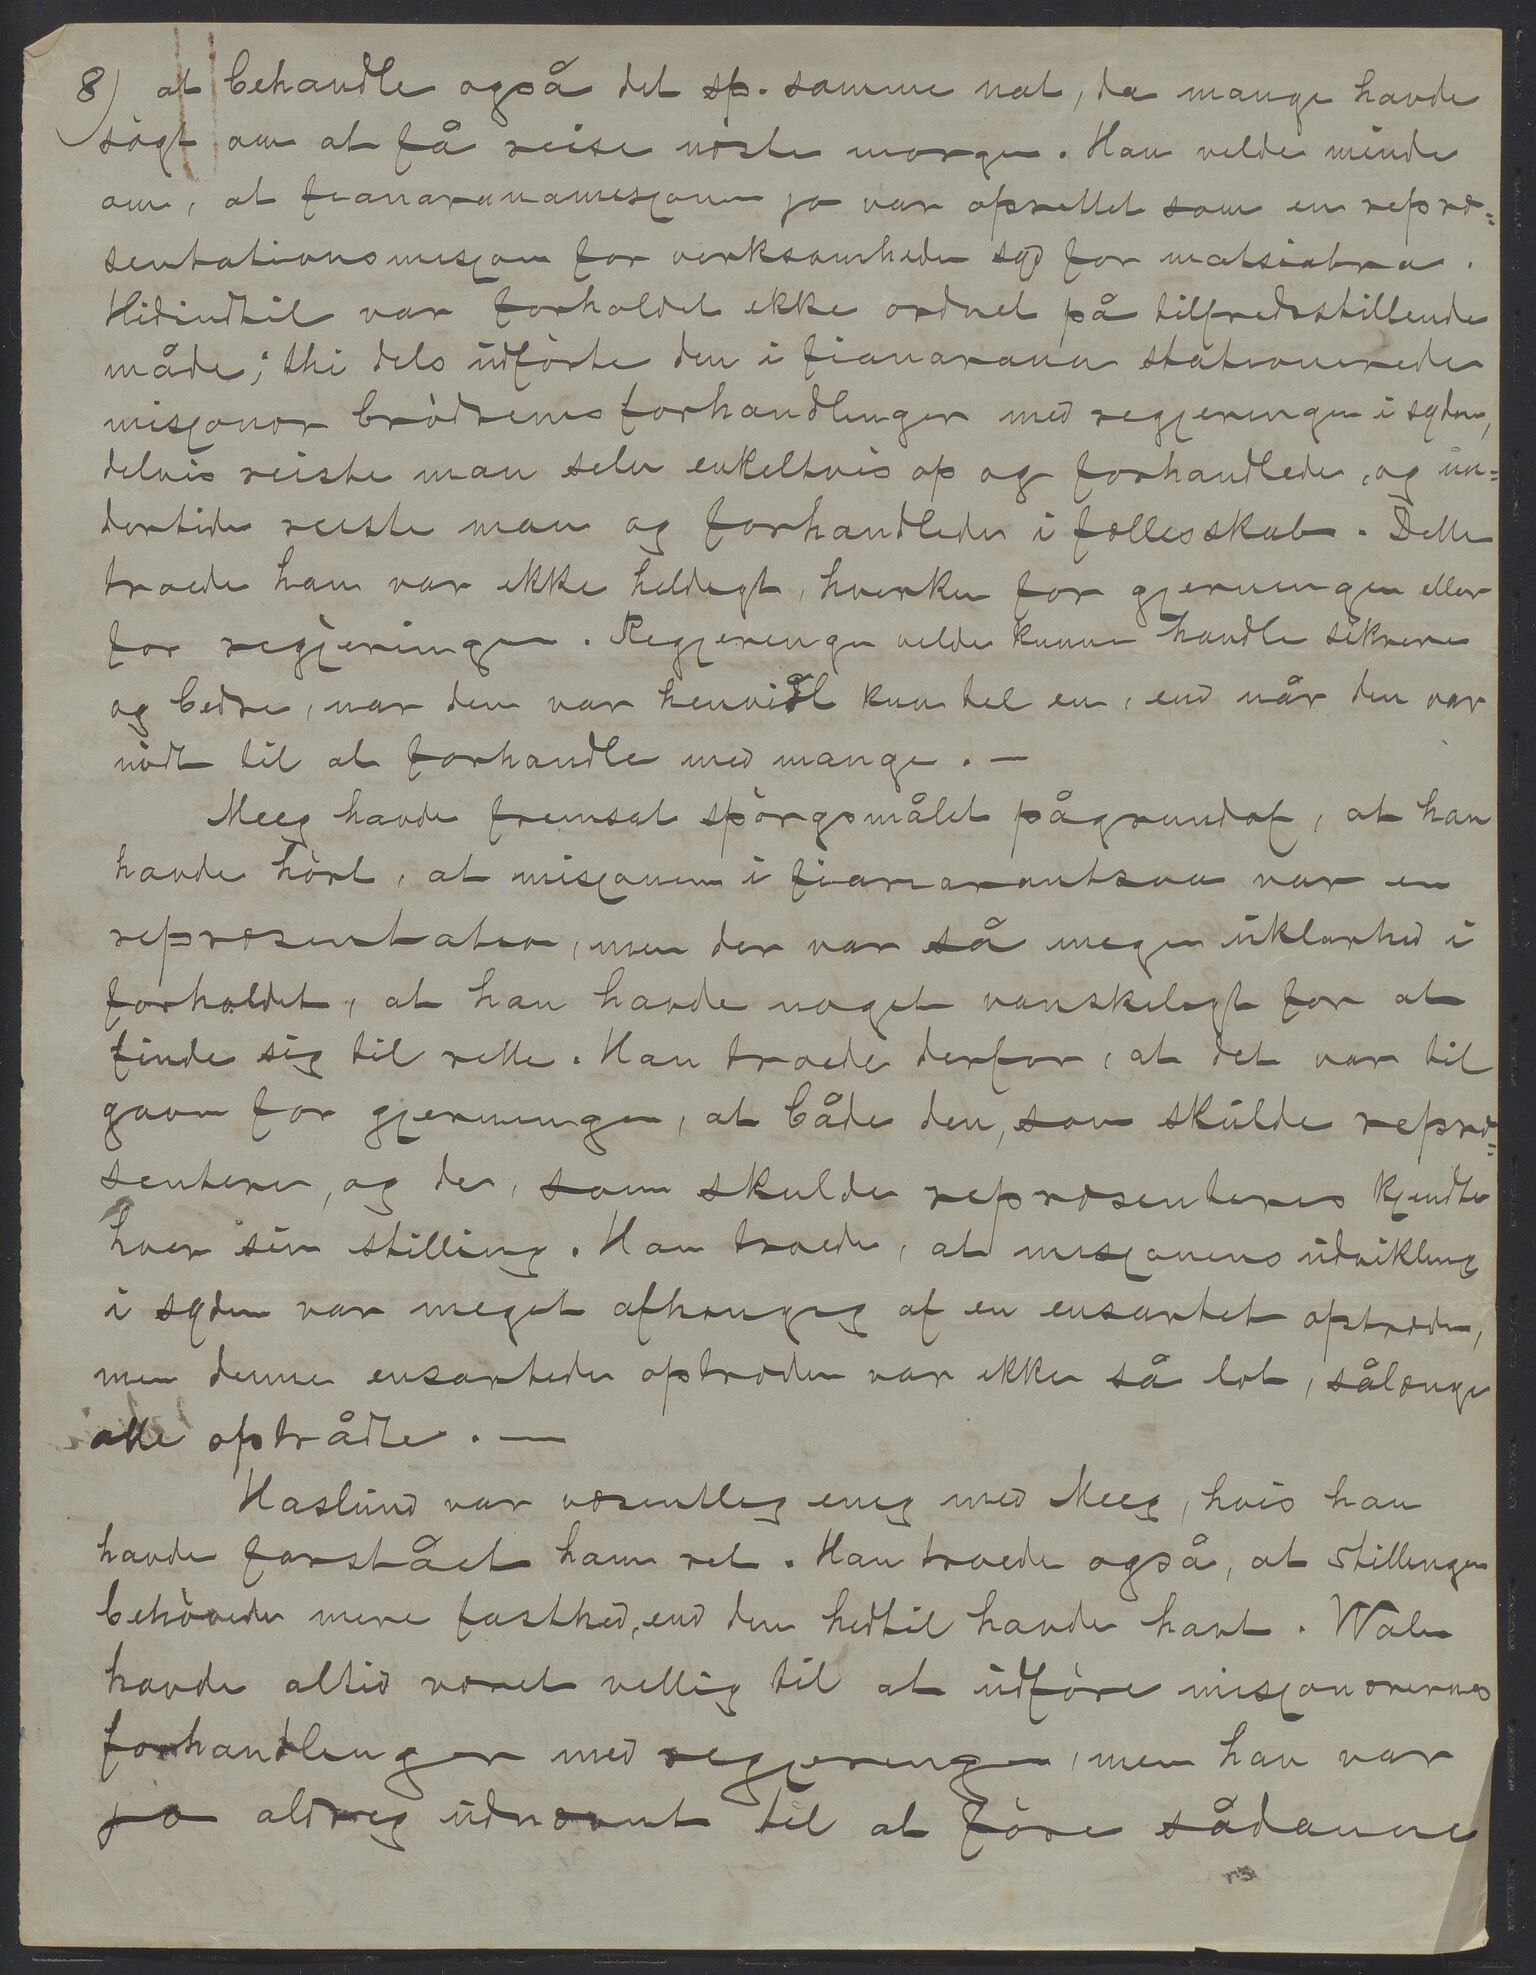 8) at behandle også det sp. samme nat, da mange havde
søgt om at få reise næste morgen. Han vilde minde
om, at fianaranamisjonen jo var oprettet som en repræ=
sentationsmisjon for verksomheden syd for matsiatra.
Hidindtil var forholdet ikke ordnet på tilfredsstillende
måde; thi dels udførte den i fianarana stationerede
misjonær brødrenes forhandlinger med regjeringen i syden,
delvis reiste man selv enkeltvis op og forhandlede, og un=
dertiden reiste man og forhandlede i fællesskab. Dette
troede han var ikke heldigt, hverken for gjerningen eller
for regjeringen. Regjeringen vilde kunne handle sikrere
og bedre, naar den var henvist kun til en, end når den var
nødt til at forhandle med mange. —
Meeg havde fremsat spørgsmålet pågrundaf, at han
havde hørt, at misjonen i fianarantsoa var en
repræsentation, men der var så megen uklarhed i
forholdet, at han havde noget vanskeligt for at
finde sig til rette. Han troede derfor, at det var til
gavn for gjerningen, at både den, som skulde repræ=
sentere, og de, som skulde repræsenteres kjendte
hver sin stilling. Han troede, at misjonens udvikling
i syden var meget afhængig af en ensartet optræden,
men denne ensartede optræden var ikke så let, sålænge
alle optrådte. —
Haslund var væsentlig enig med Meeg, hvis han
havde forstået ham ret. Han troede også, at stillingen
behøvede mere fasthed, end den hidtil havde havt. Walen
havde altid været villig til at udføre misjonærernes
forhandlinger med regjeringen, men han var
jo aldrig udnævnt til at føre sådanne